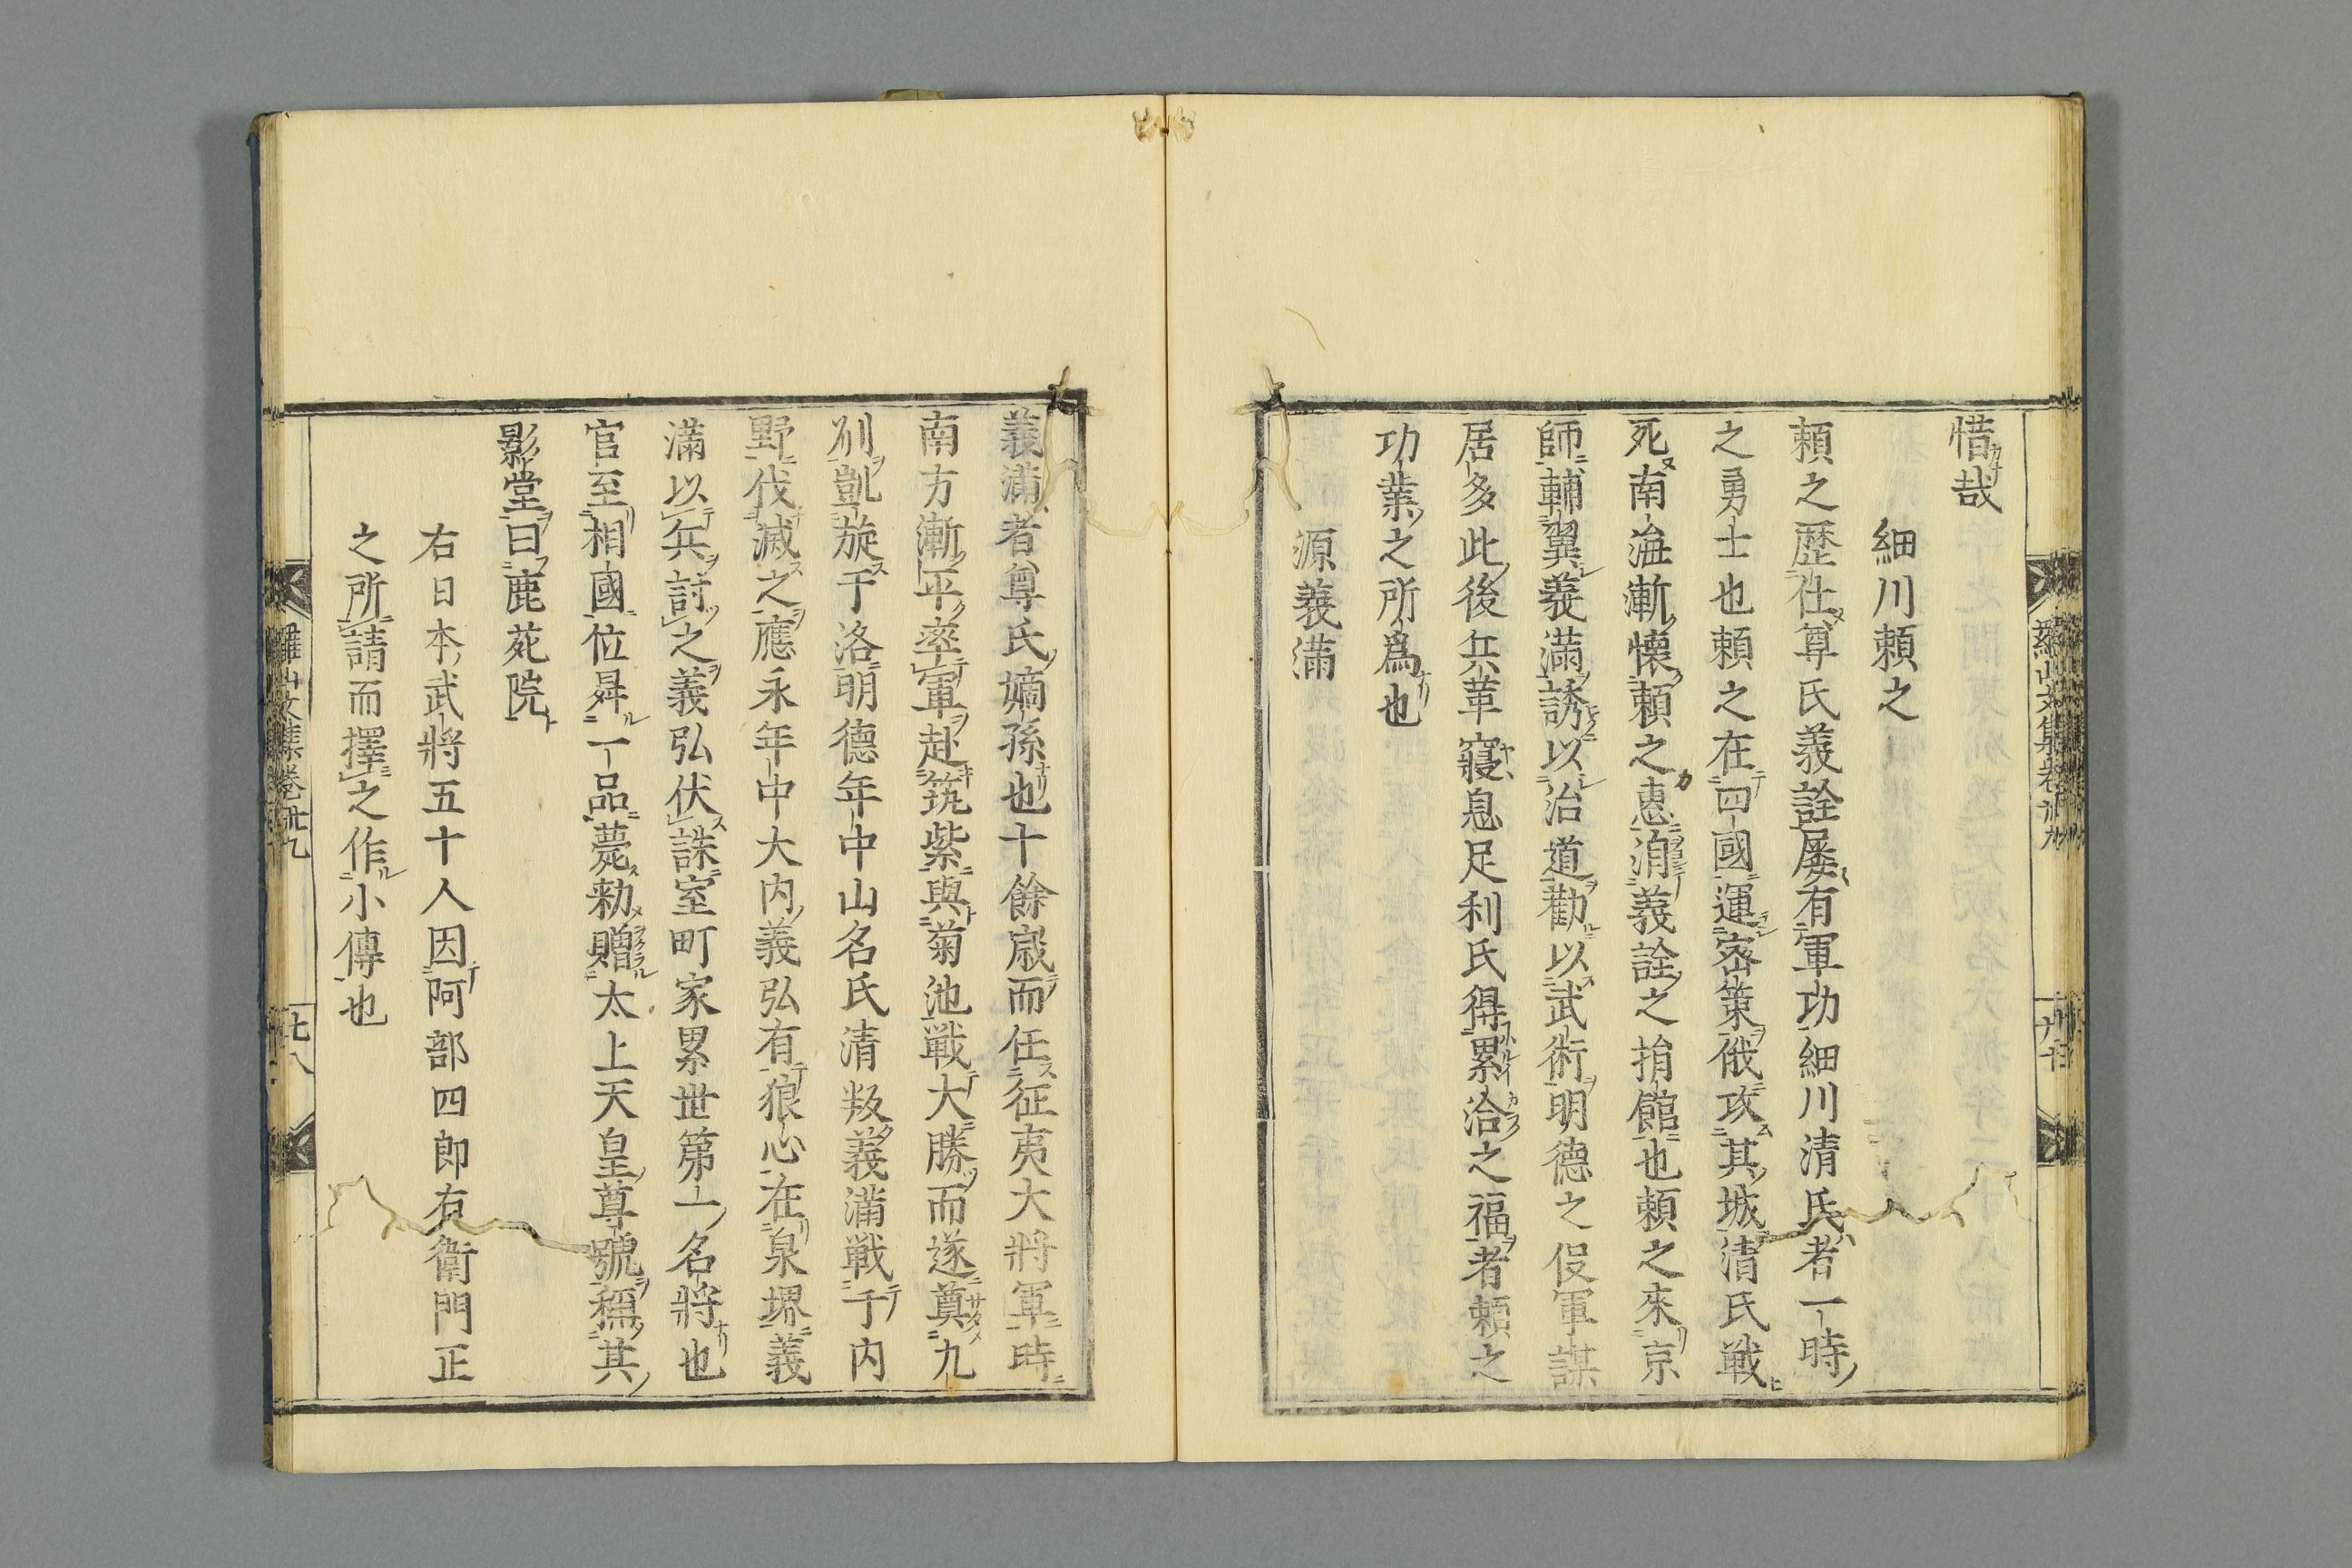 惜哉
細川頼之
頼之歴仕尊氏義詮屡有軍功細川清氏者一時
之勇士也頼之在四國運密策俄攻其城清氏戦
死南海漸懐頼之惠洎義詮之捐館也頼之來京
師輔翼義滿誘以治道勸以武術明德之役軍謀
居多此後兵革寢息足利氏得累洽之福者頼之
功業之所爲也
源義滿
義滿者尊氏嫡孫也十餘歳而任征夷大將軍時
南方漸平率軍赴筑紫與菊池戦大勝而遂奠九
州凱旋于洛明德年中山名氏清叛義滿戦于内
野伐滅之應永年中大内義弘有狼心在泉堺義
滿以兵討之義弘伏誅室町家累世第一名將也
官至相國位昇一品薨勅贈太上天皇尊號稱其
影堂曰鹿苑院
右日本武將五十人因阿部四郎右衛門正
之所請而擇之作小傳也
羅山文集卷卅九